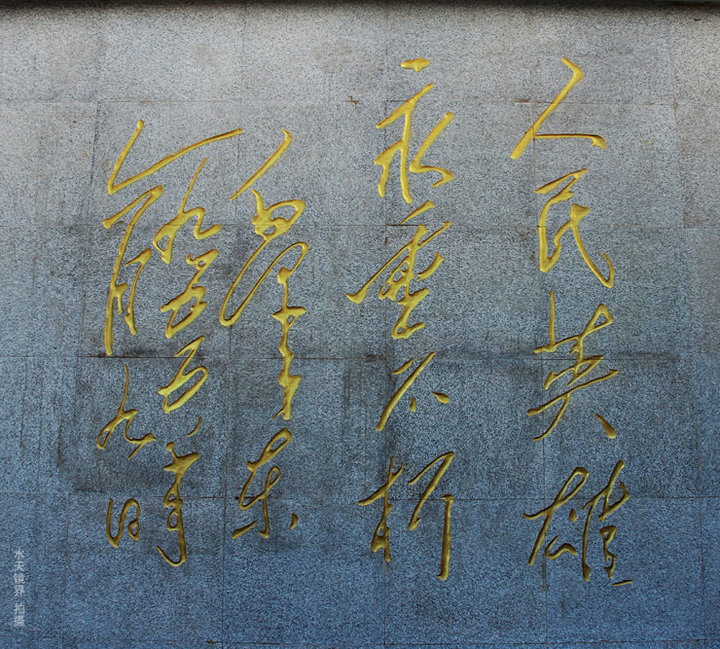 人民英雄
永垂不朽
毛泽东
一九五五年
六月九日
水天镜界 拍摄